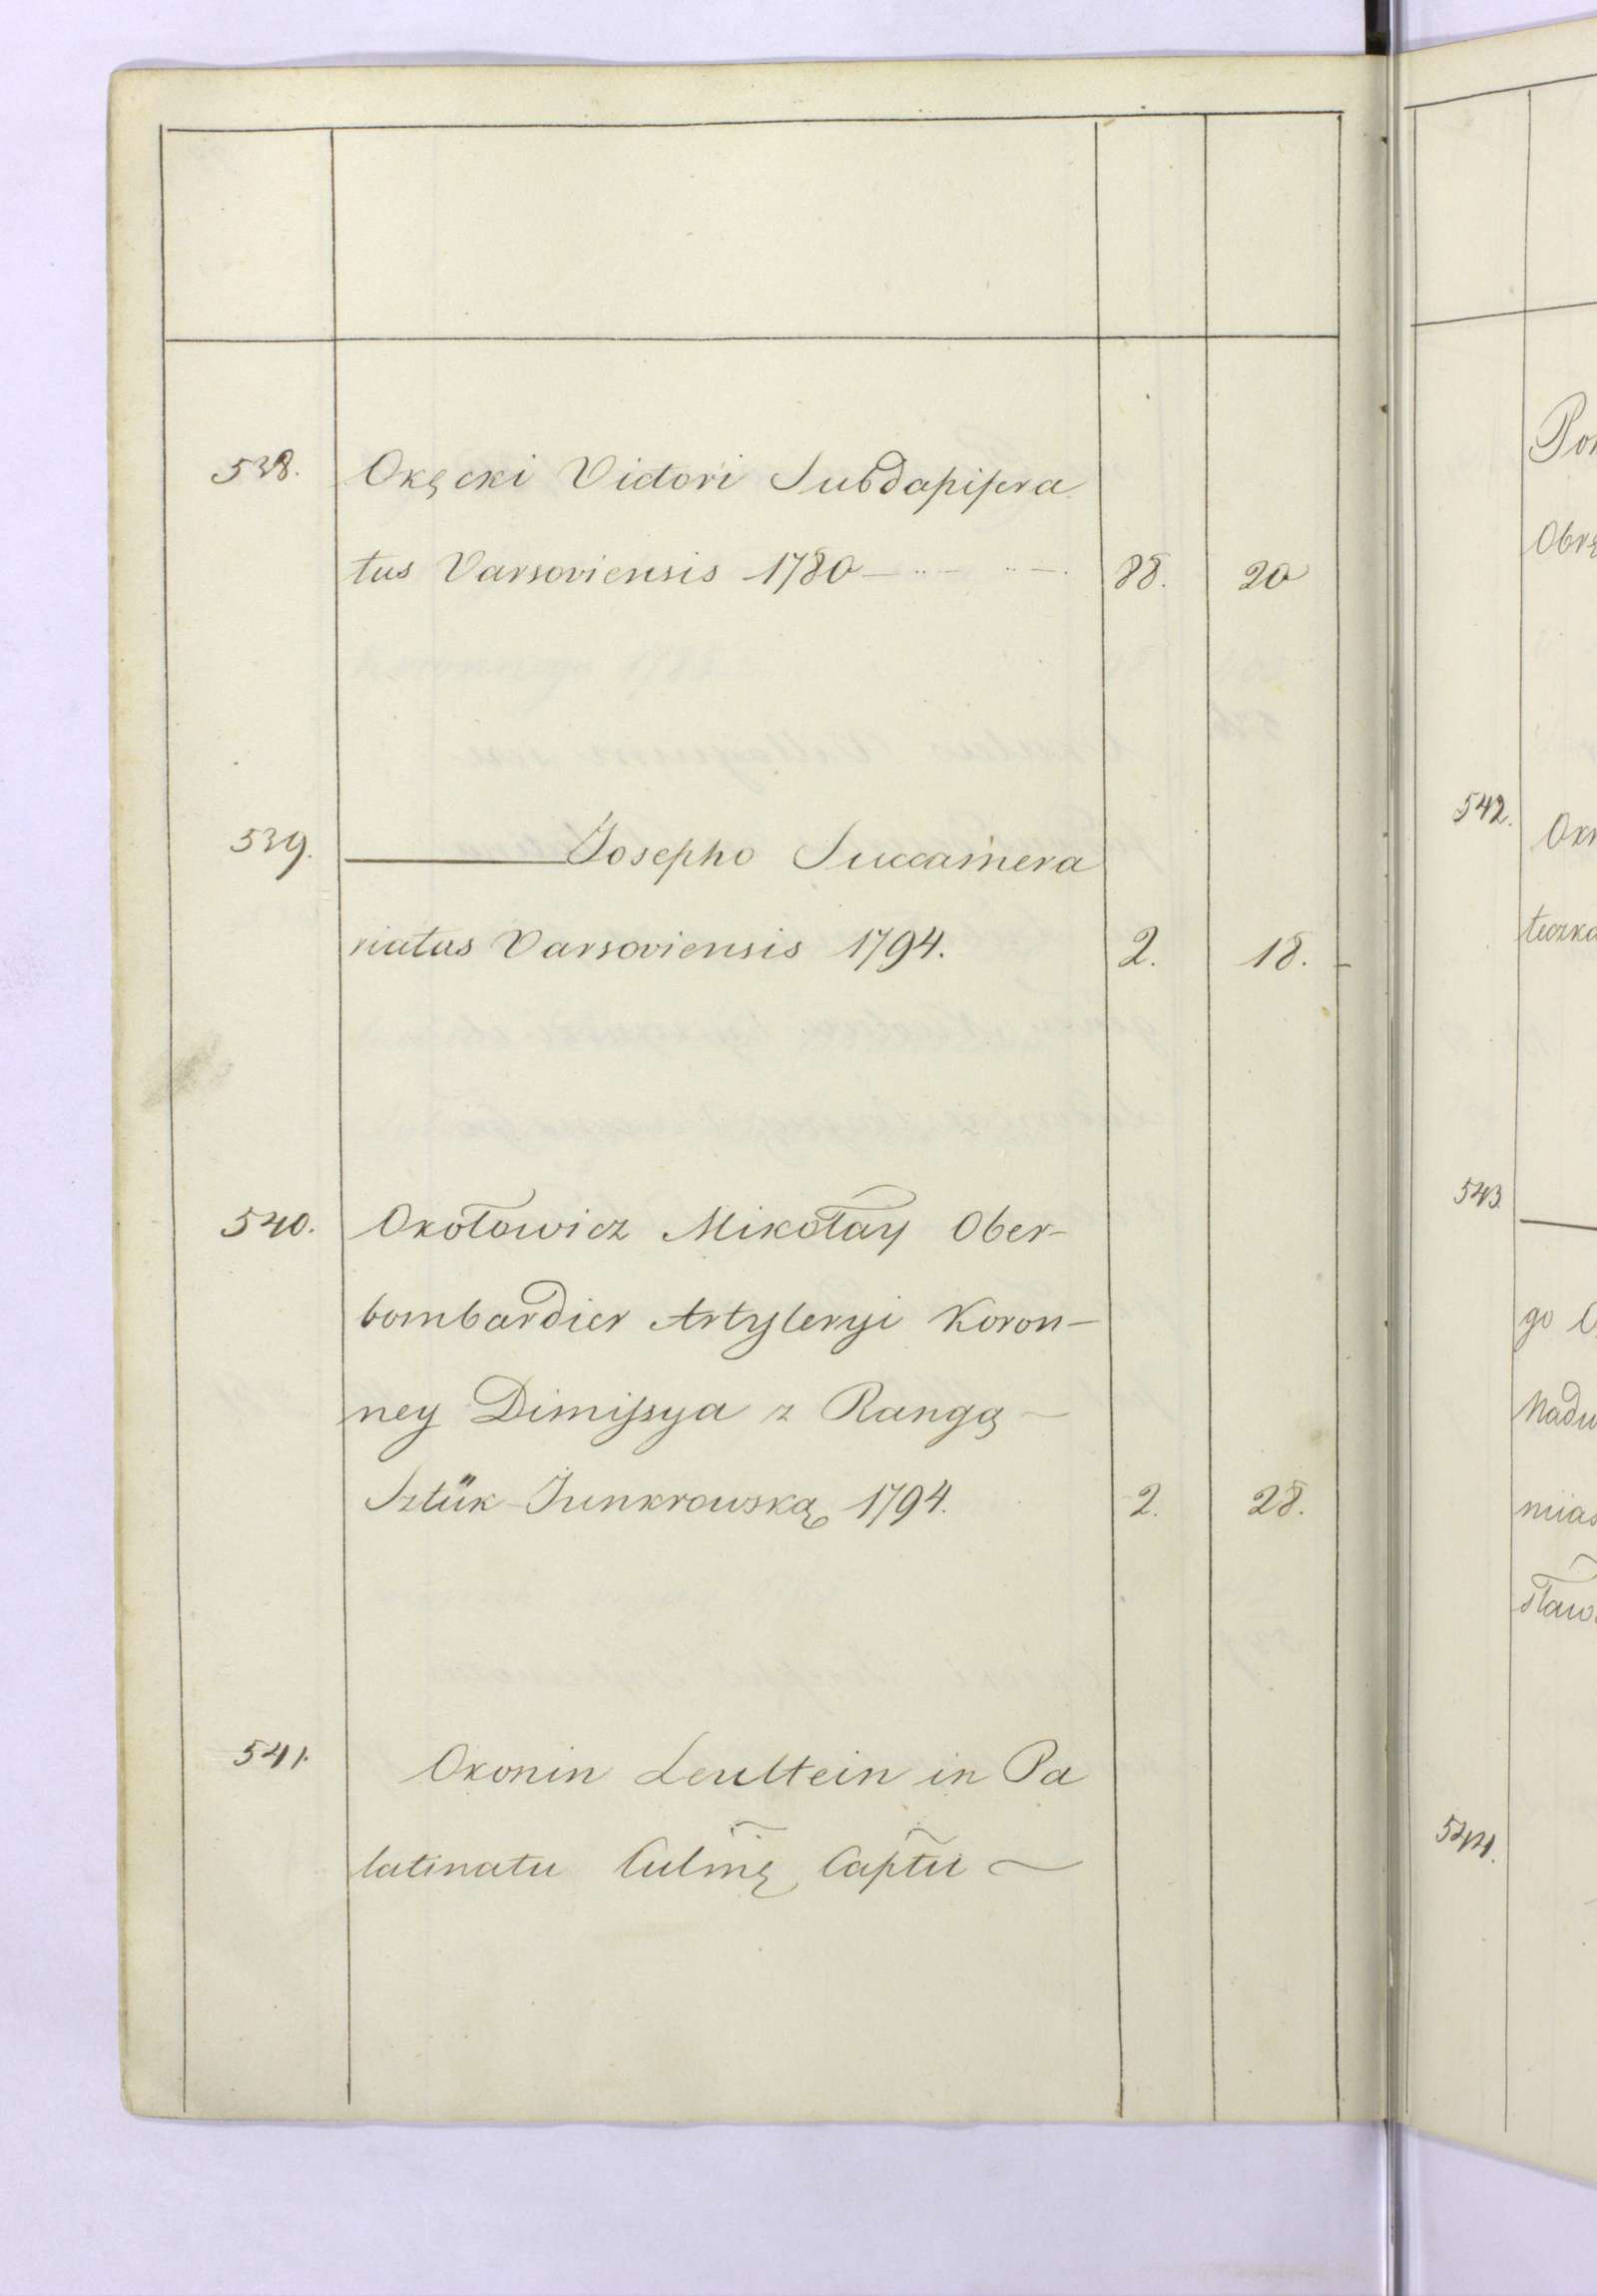 538. Okęcki Victori Subdapifera
tus Varsoviensis 1780 88. 20
539. Josepho Succamera
riatus Varsoviensis 1794. 2. 18.
540. Okołowicz Mikołay Ober-
bombardier Artyleryi Koron-
ney Dimissya z Rangą
Sztük-Junkrowską 1794. 2. 28.
541. Okonin in Pa
latinatu Culmę Captu
542.
543.
go
544.